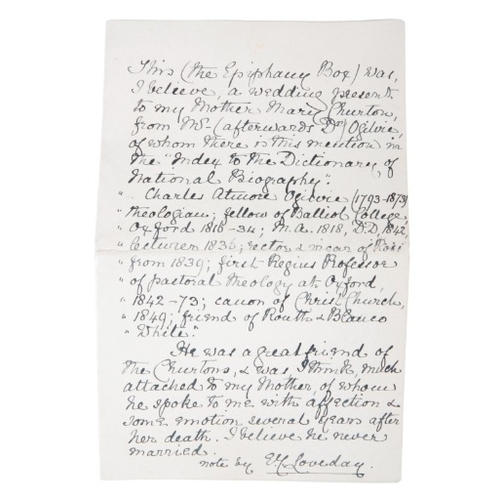 This (the Epiphany Box) was,
I believe, a wedding present
to my Mother Mary Churton,
from Mr- (afterwards Dr) Ogilvie,
of whom there is this mention in
the "Index to the Dictionary of
National Biography".
" Charles Atmore Ogilvie (1793-1873)
" theologian; fellow of Balliol College,
" Oxford 1816-34; M.A. 1818, D.D. 1842
" lecturer 1836; rector & vicar of Ross
" from 1839; first Regius Professor
" of pastoral theology at Oxford,
" 1842-73; canon of Christ Church,
" 1849; friend of Routh & Blanco
" White."
He was a great friend of
the Churtons, & was, I think, much
attached to my Mother, of whom
he spoke to me with affection &
some emotion several years after
her death. I believe he never
married.
note by Loveday.